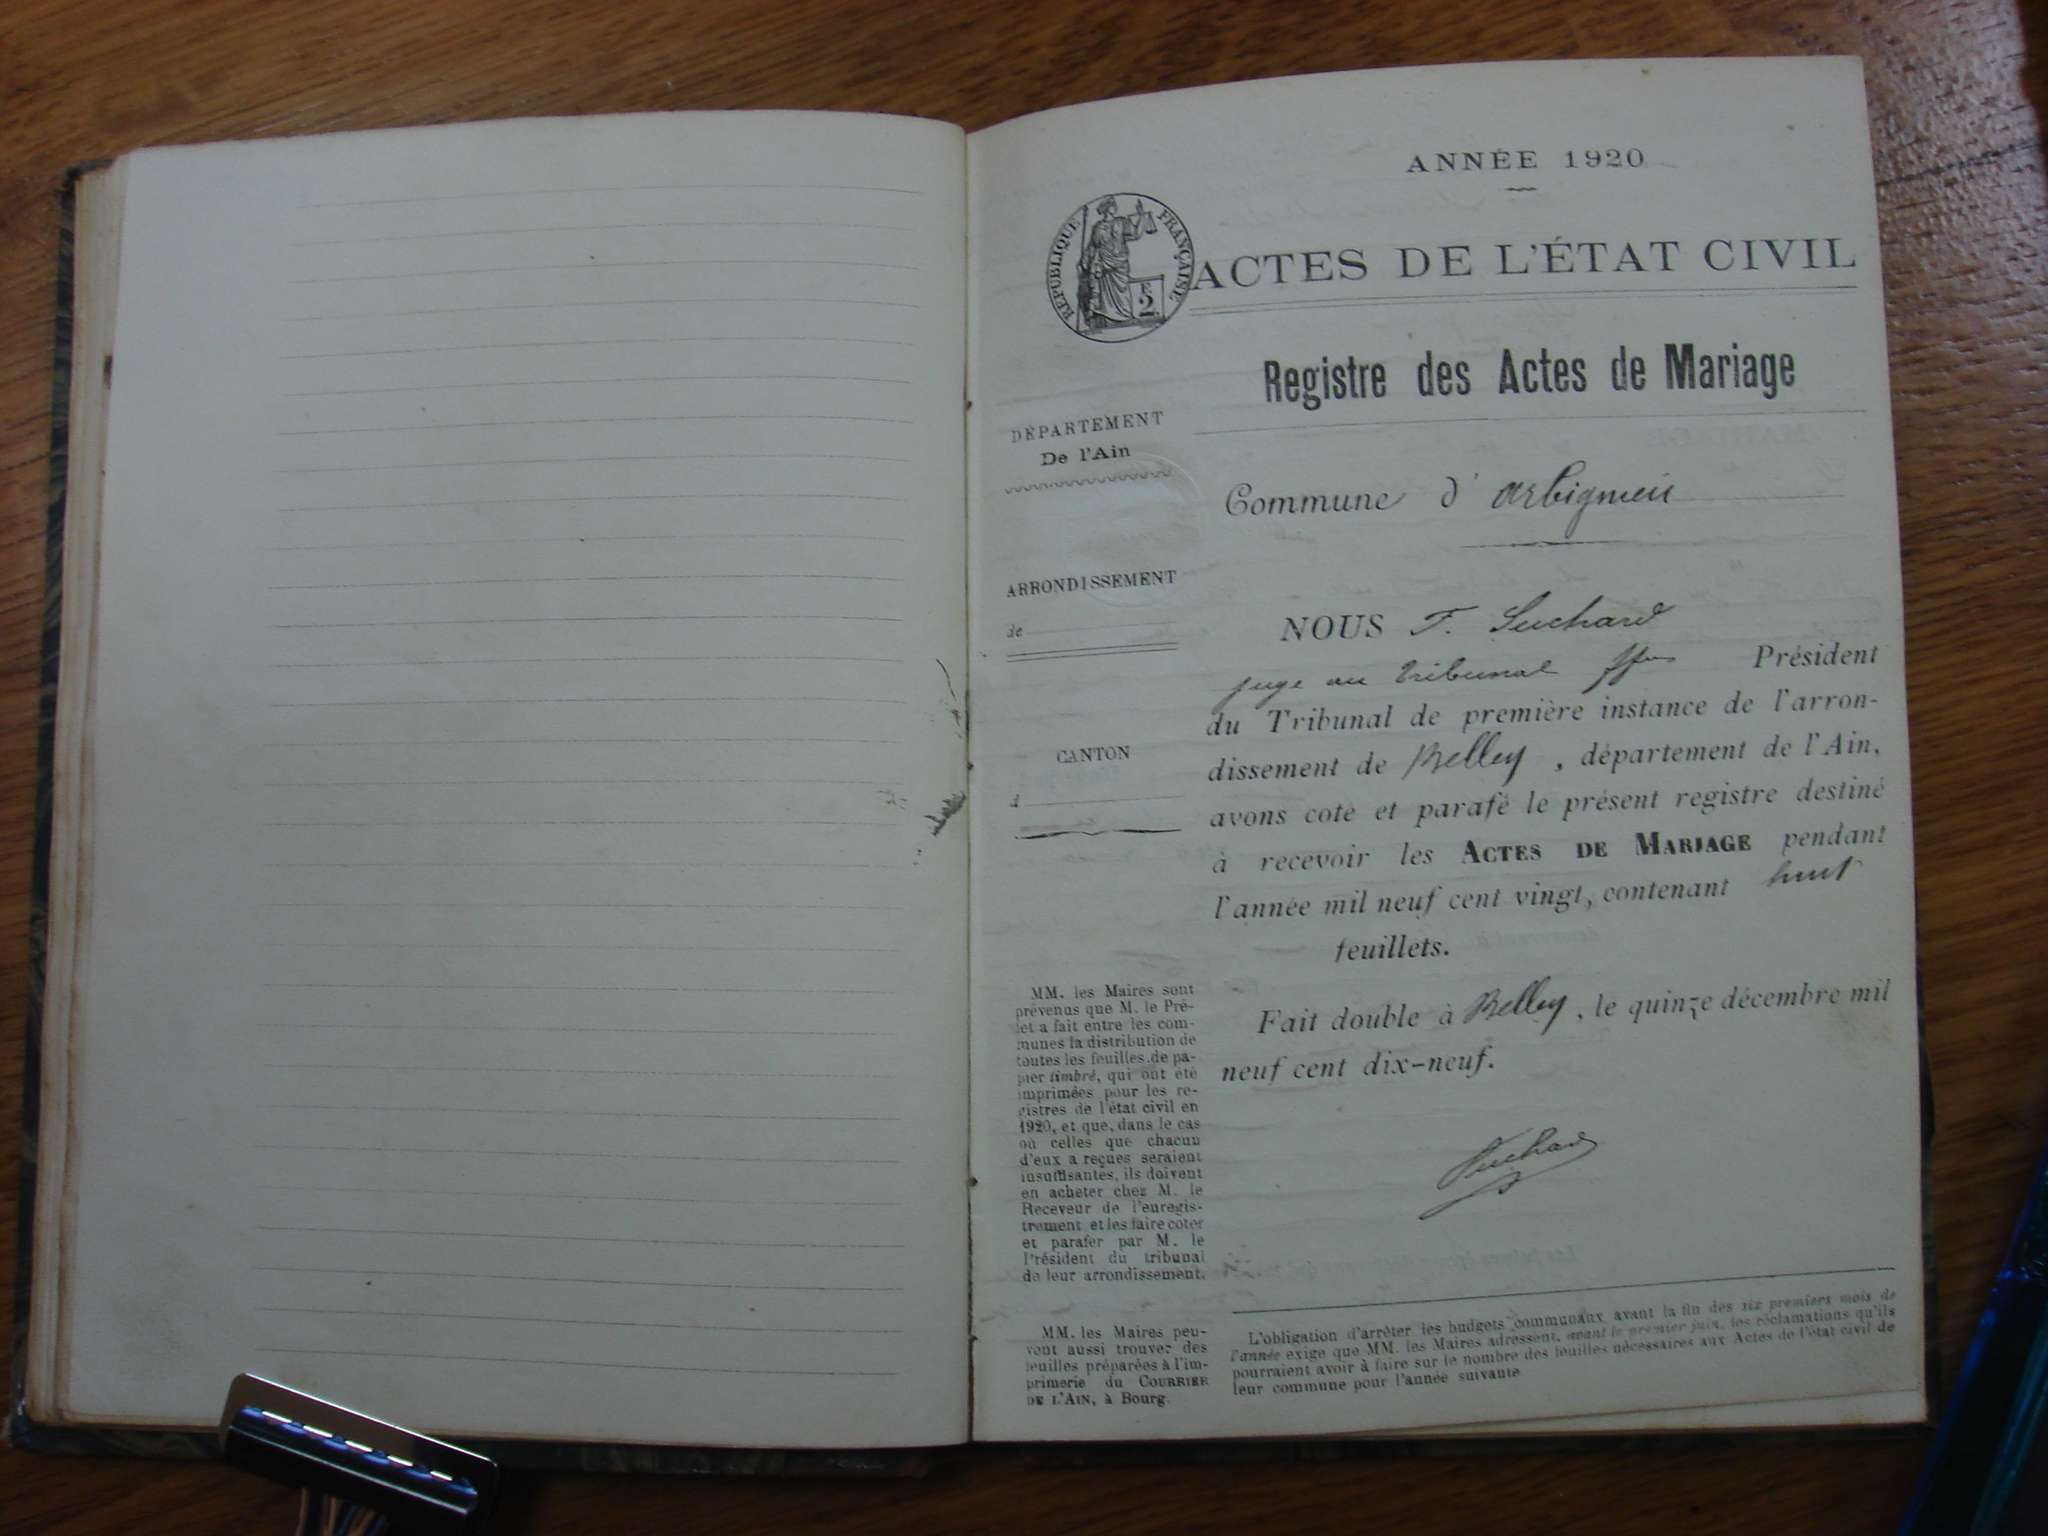 ANNÉE 1920
RÉPUBLIQUE FRANÇAISE
2F
ACTES DE L'ÉTAT CIVIL
Registre des Actes de Mariage
DÉPARTEMENT
De l'Ain
Commune d' Arbignieu
ARRONDISSEMENT
de
CANTON
d
NOUS F. Suchard
juge au tribunal ffons Président
du Tribunal de première instance de l'arron-
dissement de Belley, département de l'Ain,
avons coté et parafé le présent registre destiné
à recevoir les ACTES DE MARIAGE pendant
l'année mil neuf cent vingt, contenant huit
feuillets.
Fait double à Belley, le quinze décembre mil
neuf cent dix-neuf.
Suchard
MM. les Maires sont
prévenus que M. le Pré-
fet a fait entre les com-
munes la distribution de
toutes les feuilles de pa-
pier timbré, qui ont été
imprimées pour les re-
gistres de l'état civil en
1920, et que, dans le cas
où celles que chacun
d'eux a reçues seraient
insuffisantes, ils doivent
en acheter chez M. le
Receveur de l'enregis-
trement et les faire coter
et parafer par M. le
Président du tribunal
de leur arrondissement.
MM. les Maires peu-
vent aussi trouver des
feuilles préparées à l'im-
primerie du COURRIER
DE L'AIN, à Bourg.
L'obligation d'arrêter les budgets communaux avant la fin des six premiers mois de
l'année exige que MM. les Maires adressent, avant le premier juin, les réclamations qu'ils
pourraient avoir à faire sur le nombre des feuilles nécessaires aux Actes de l'état civil de
leur commune pour l'année suivante.